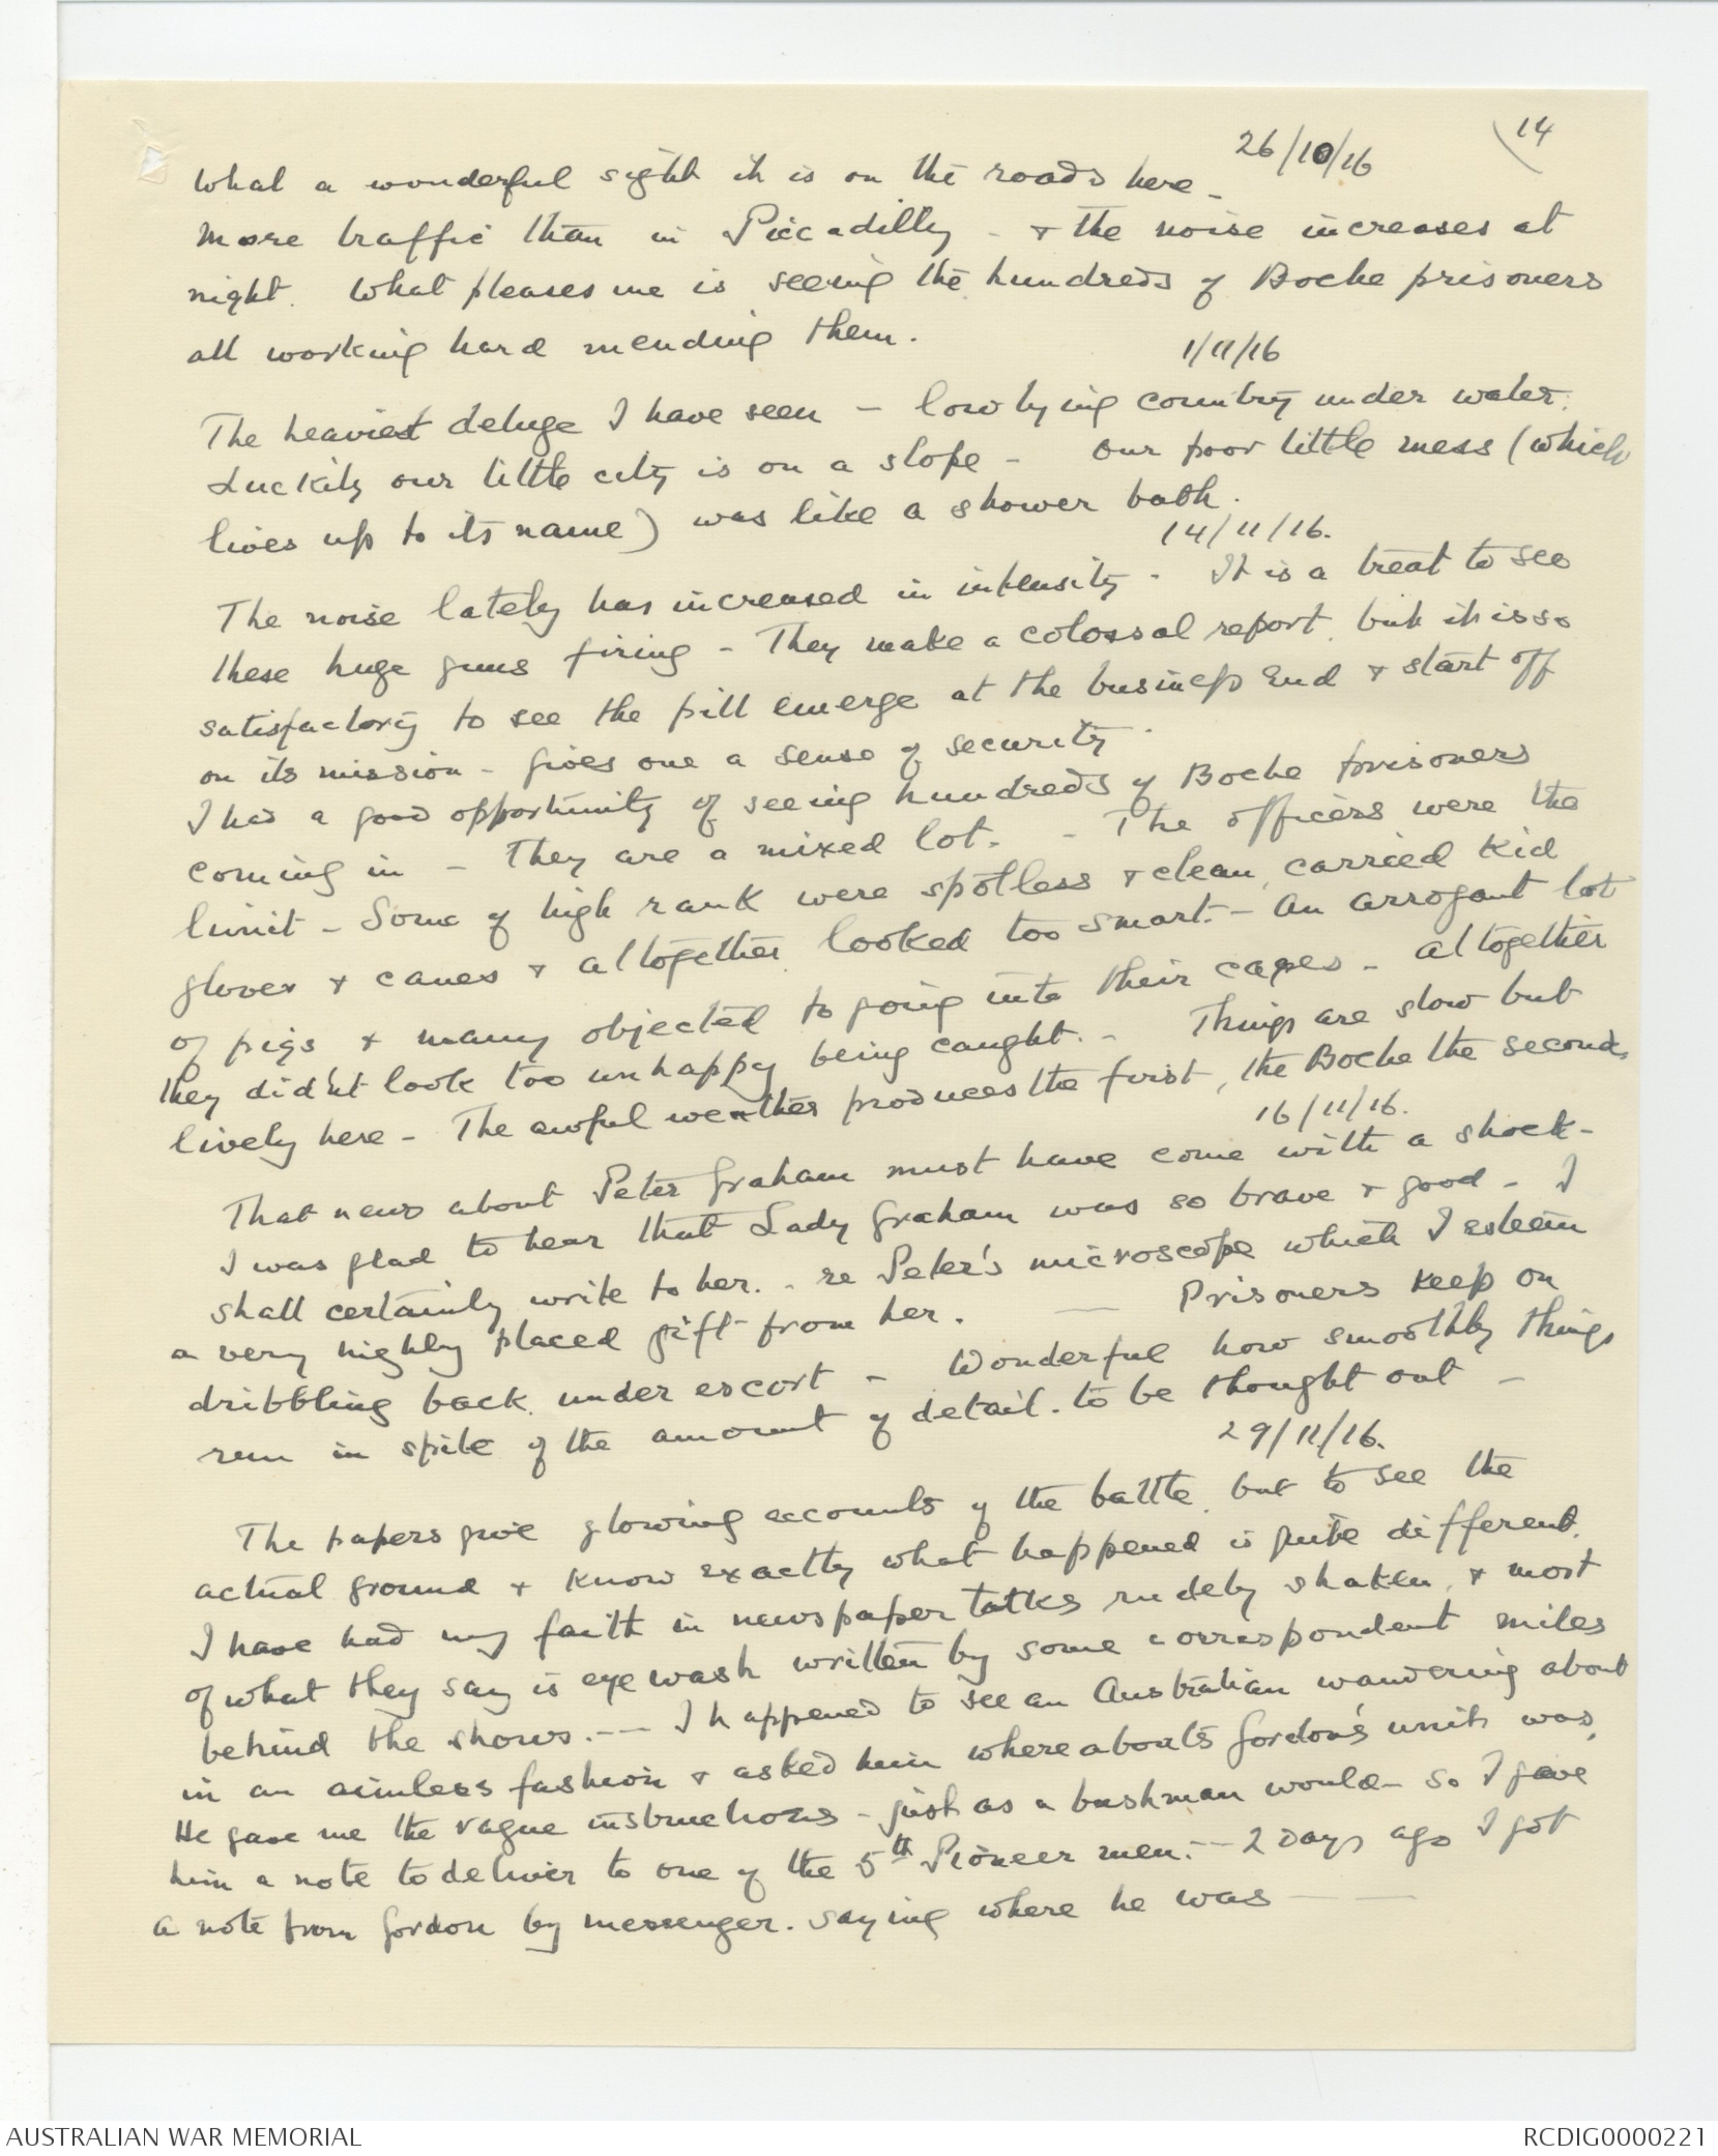 14
26/10/16
What a wonderful sight it is on the roads here -
More traffic than in Piccadilly - & the noise increases at
night. What pleases me is seeing the hundreds of Boche prisoners
all working hard mending them.
1/11/16
The heaviest deluge I have seen - low lying country under water.
Luckily our little city is on a slope - Our poor little mess (which
lives up to its name) was like a shower bath.
14/11/16.
The noise lately has increased in intensity - It is a treat to see
these huge guns firing - They make a colossal report but it is so
satisfactory to see the pill emerge at the business end & start off
on its mission - gives one a sense of security.
I had a good opportunity of seeing hundreds of Boche prisoners
coming in - They are a mixed lot. - The officers were the
limit - Some of high rank were spotless & clean, carried kid
gloves & canes & altogether looked too smart. - An arrogant lot
of pigs & many objected to going into their cages - altogether
they did'nt look too unhappy being caught. - Things are slow but
lively here - The awful weather produces the first, the Boche the second.
16/11/16.
That news about Peter Graham must have come with a shock -
I was glad to hear that Lady Graham was so brave & good - I
shall certainly write to her. - re Peter's microscope which I esteem
a very highly placed gift from her. — Prisoners keep on
dribbling back under escort - Wonderful how smoothly things
run in spite of the amount of detail to be thought out -
29/11/16.
The papers give glowing accounts of the battle, but to see the
actual ground & know exactly what happened is quite different.
I have had my faith in newspaper talks rudely shaken, & most
of what they say is eye wash written by some correspondent miles
behind the shows. -- I happened to see an Australian wandering about
in an aimless fashion & asked him whereabouts Gordon's unit was.
He gave me the vague instructions - just as a bushman would - So I gave
him a note to deliver to one of the 5th Pioneer men. -- 2 Days ago I got
a note from Gordon by messenger. saying where he was — —
AUSTRALIAN WAR MEMORIAL
RCDIG0000221